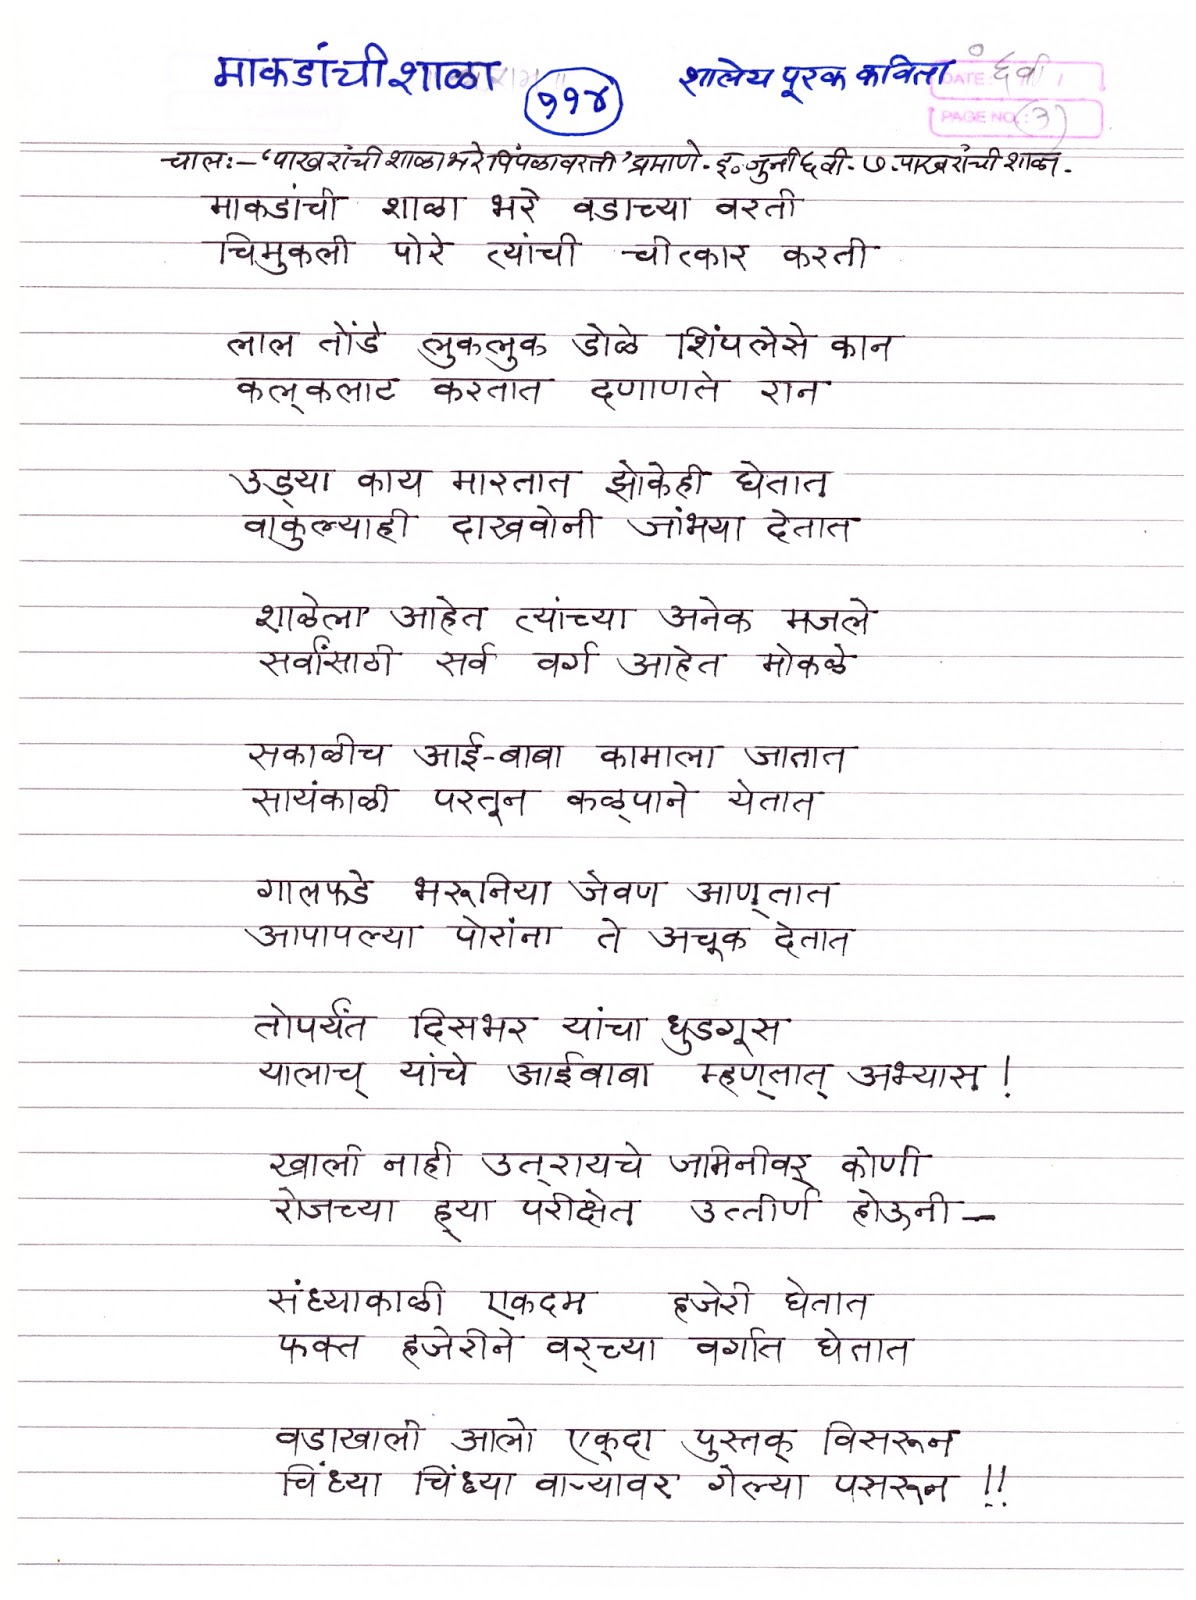 माकडांची शाळा ११४ शालेय पूरक कविता ६वी
DATE:
PAGE NO.: ३
चाल:- 'पाखरांची शाळा भरे पिंपळावरती' प्रमाणे. इ॰ जुनी ६वी. ७. पाखरांची शाळा.
माकडांची शाळा भरे वडाच्या वरती
चिमुकली पोरे त्यांची चीत्कार करती
लाल तोंडे लुकलुक डोळे शिंपलेसे कान
कल्कलाट करतात दणाणते रान
उड्या काय मारतात झोकेही घेतात
वाकुल्याही दाखवोनी जांभया देतात
शाळेला आहेत त्यांच्या अनेक मजले
सर्वांसाठी सर्व वर्ग आहेत मोकळे
सकाळीच आई-बाबा कामाला जातात
सायंकाळी परतून कळ्पाने येतात
गालफडे भरूनिया जेवण आण्तात
आपापल्या पोरांना ते अचूक देतात
तोपर्यंत दिसभर यांचा धुडगूस
यालाच् यांचे आईबाबा म्हण्तात् अभ्यास !
खाली नाही उत्‌रायचे जमिनीवर् कोणी
रोजच्या ह्या परीक्षेत उत्तीर्ण होऊनी –
संध्याकाळी एकदम हजेरी घेतात
फक्त हजेरीने वर्‌च्या वर्गात घेतात
वडाखाली आलो एक्‌दा पुस्तक् विसरून
चिंध्या चिंध्या वाऱ्यावर गेल्या पसरून !!